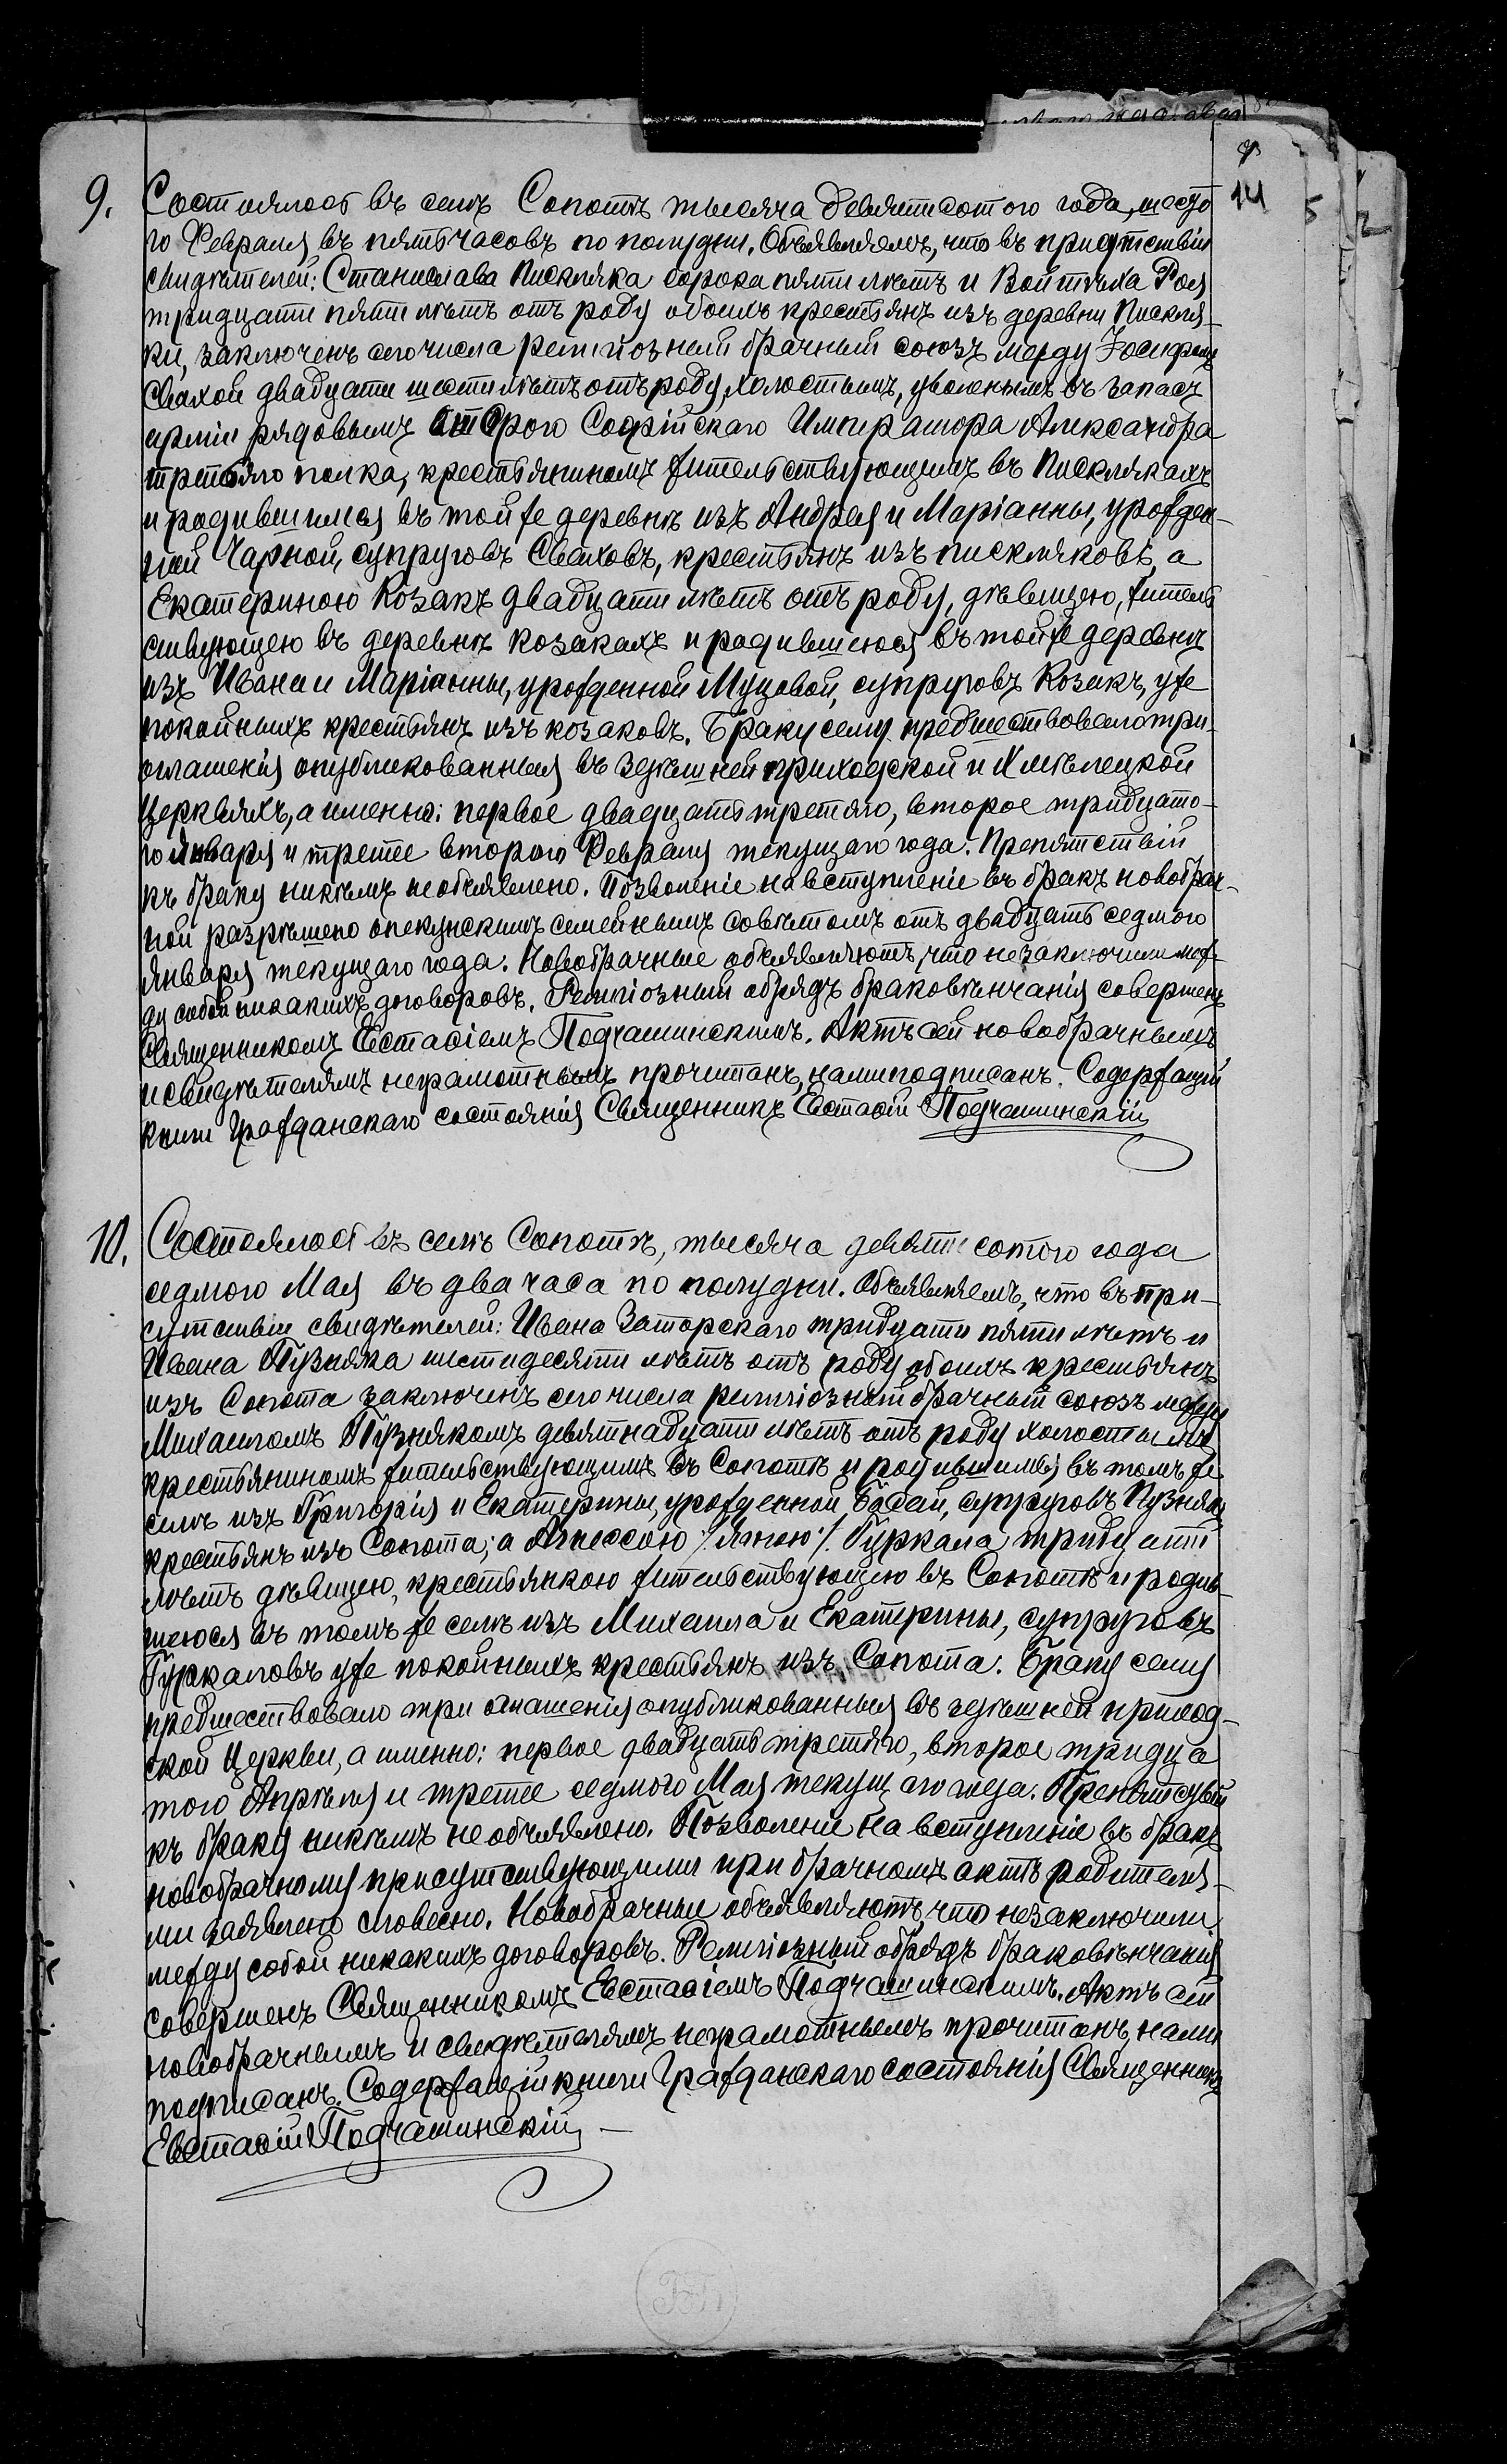 14
9. Состоялось въ селѣ Сопотѣ тысяча девятисотого года, шесто
го Февраля въ пять часовъ по полудни. Объявляемъ, что въ присутствіи
свидѣтелей: Станислава Пискляка сорока пяти лѣтъ и Войтѣха Роя
тридцати пяти лѣтъ отъ роду обоихъ крестьянъ изъ деревни Пискля-
ки, заключенъ сего числа религіозный брачный союзъ между Іосифомъ
Свахой двадцати шести лѣтъ отъ роду, холостымъ, уволенымъ въ запасъ
арміи рядовымъ Софійскаго Императора Александра
третьяго полка, крестьяниномъ жительствующемъ въ Пискляках
и родившимся въ той же деревнѣ изъ Андрея и Маріанны, урожден-
ной Чарной, супруговъ Сваховъ, крестьянъ изъ писклякове, а
Екатериною Козакъ двадцати лѣтъ отъ роду, дѣвицею, житель
ствующею въ деревнѣ козакахъ и родившеюся въ той же деревнѣ
изъ Ивана и Маріанны, урожденной Муцовой, супруговъ Козакъ, уже
покойныхъ крестьянъ изъ козаковъ. Браку сему предшествовало три
оглашенія опубликованныя въ здѣшней приходской и Хмѣлецкой
церквяхъ, а именно: первое двадцать третяго, второе тридцато-
го Января и третее второго Февраля текущаго года. Препятствій
къ браку никѣмъ необъявлено. Позволеніе на вступленіе въ бракъ новобрач-
ной разрѣшено опекунскимъ семейнымъ совѣтомъ отъ двадцать седмого
января текущаго года. Новобрачные объявляютъ, что незаключили меж-
ду собой никакихъ договоровъ. Религіозный обрядъ браковѣнчанія совершенъ
Священникомъ Евстафіемъ Подчашинскимъ. Актъ сей новобрачнымъ
и свидѣтелямъ неграмотнымъ прочитанъ, нами подписанъ. Содержащій
книги гражданскаго состоянія Священникъ Евстафій Подчашинскій
10. Состоялось въ селѣ Сопотѣ, тысяча девятисотого года
седмого Мая въ два часа по полудни. Объявляемъ, что въ при-
сутствіи свидѣтелей: Ивана Заторскаго тридцати пяти лѣтъ и
Ивана Пузняка шестидесяти лѣтъ отъ роду обоихъ крестьянъ
изъ Сопота заключенъ сего числа религіозный брачный союзъ между
Михаиломъ Пузнякомъ девятнадцати лѣтъ отъ роду холостымъ
крестьяниномъ жительствующимъ въ Сопотѣ и родившимся въ томъ же
селѣ изъ Григорія и Екатерины, урожденной Бадай, супруговъ Пузнякъ
крестьянъ изъ Сопота; а Агнессою /:Ягною:/ Гуркала тридцати
лѣтъ дѣвицею, крестьянкою жительствующею въ Сопотѣ и родив-
шеюся въ томъ же селѣ изъ Михаила и Екатерины, супруговъ
Гуркаловъ уже покойныхъ крестьянъ изъ Сопота. Браку сему
предшествовало три оглашенія опубликованныя въ здѣшней приход-
ской Церкви, а именно: первое двадцать третяго, второе тридца
того Апрѣля и третее седмого Мая текущаго года. Препятствій
къ браку никѣмъ не объявлено. Позволеніе на вступленіе въ бракъ
новобрачному присутствующими при брачномъ актѣ родителя-
ми заявлено словесно. Новобрачныи объявляютъ, что незаключили
между собой никакихъ договоровъ. Религіозный обрядъ браковѣнчанія
совершенъ Священникомъ Евстафіемъ Подчашинскимъ. Актъ сей
новобрачнымъ и свидѣтелямъ неграмотнымъ прочитанъ, нами
подписанъ. Содержащій книги Гражданскаго состоянія Священникъ
Евстафій Подчашинскій